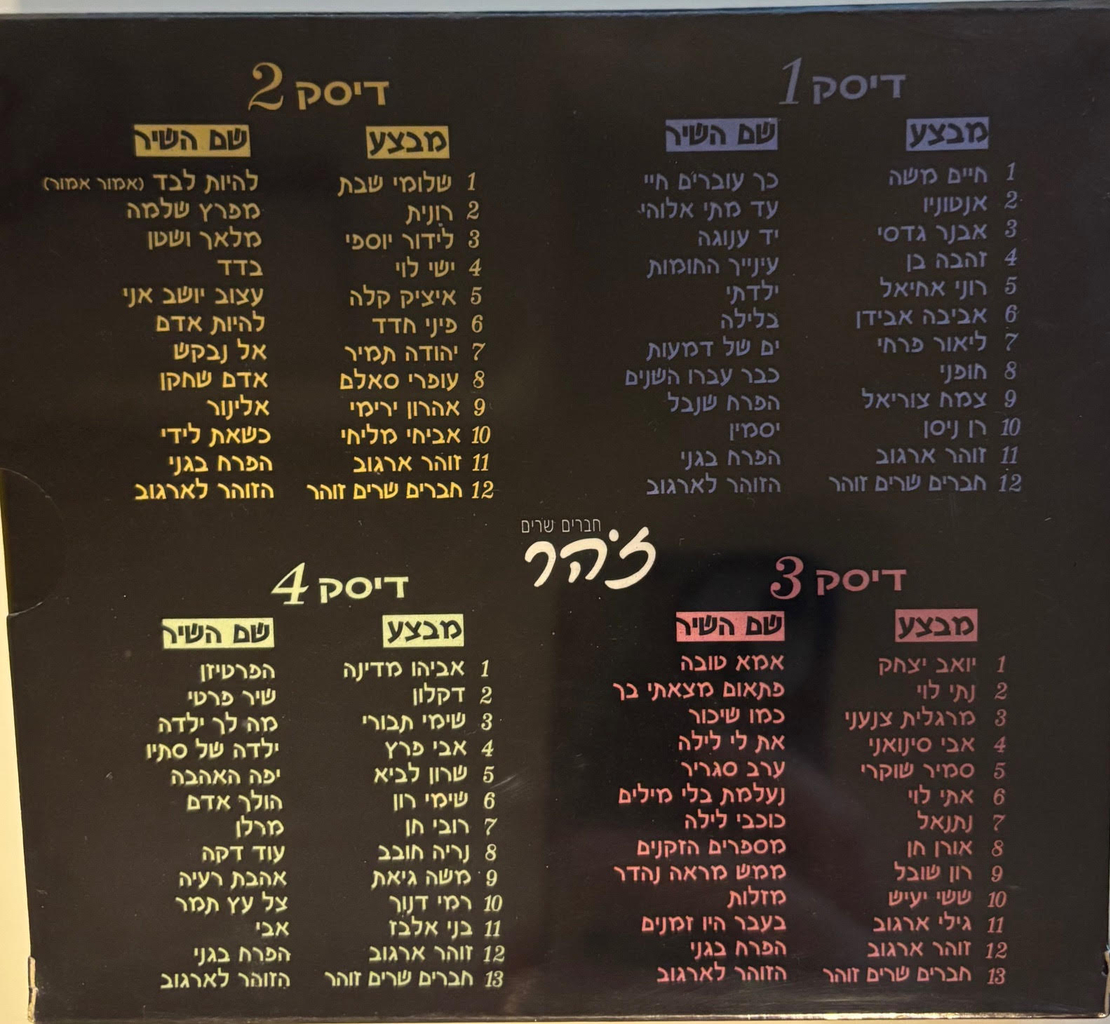 דיסק 1
מבצע שם השיר
1 חיים משה כך עוברים חיי
2 אנטוניו עד מתי אלוהי
3 אבנר גדסי יד ענוגה
4 זהבה בן עינייך החומות
5 רוני אחיאל ילדתי
6 אביבה אבידן בלילה
7 ליאור פרחי ים של דמעות
8 חופני כבר עברו השנים
9 צמח צוריאל הפרח שנבל
10 רן ניסן יסמין
11 זוהר ארגוב הפרח בגני
12 חברים שרים זוהר הזוהר לארגוב
דיסק 2
מבצע שם השיר
1 שלומי שבת להיות לבד (אמור אמור)
2 רונית מפרץ שלמה
3 לידור יוספי מלאך ושטן
4 ישי לוי בדד
5 איציק קלה עצוב יושב אני
6 פיני חדד להיות אדם
7 יהודה תמיר אל נבקש
8 עופרי סאלם אדם שחקן
9 אהרון ירימי אלינור
10 אביחי מליחי כשאת לידי
11 זוהר ארגוב הפרח בגני
12 חברים שרים זוהר הזוהר לארגוב
חברים שרים
זוהר
דיסק 3
מבצע שם השיר
1 יואב יצחק אמא טובה
2 נתי לוי פתאום מצאתי בך
3 מרגלית צנעני כמו שיכור
4 אבי סינואני את לי לילה
5 סמיר שוקרי ערב סגריר
6 אתי לוי נעלמת בלי מילים
7 נתנאל כוכבי לילה
8 אורן חן מספרים הזקנים
9 רון שובל ממש מראה נהדר
10 ששי יעיש מזלות
11 גילי ארגוב בעבר היו זמנים
12 זוהר ארגוב הפרח בגני
13 חברים שרים זוהר הזוהר לארגוב
דיסק 4
מבצע שם השיר
1 אביהו מדינה הפרטיזן
2 דקלון שיר פרטי
3 שימי תבורי מה לך ילדה
4 אבי פרץ ילדה של סתיו
5 שרון לביא יפה האהבה
6 שימי רון הולך אדם
7 רובי חן מרלן
8 נריה חובב עוד דקה
9 משה גיאת אהבת רעיה
10 רמי דנוך צל עץ תמר
11 בני אלבז אבי
12 זוהר ארגוב הפרח בגני
13 חברים שרים זוהר הזוהר לארגוב